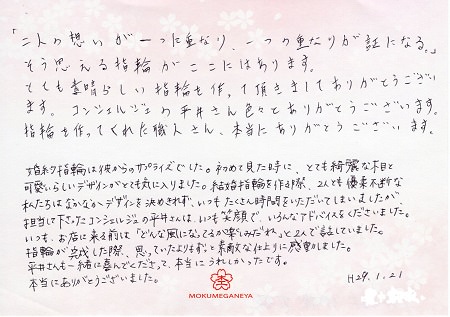 「二人の想いが一つに重なり、一つの重なりが証になる。」
そう思える指輪がここにはあります。
とても素晴らしい指輪を作って頂きましてありがとうござい
ます。コンシェルジュの平井さん色々とありがとうございます。
指輪を作ってくれた職人さん、本当にありがとうございます。
婚約指輪は彼からのサプライズでした。初めて見た時に、とても綺麗な木目と
可愛いらしいデザインがとても気に入りました。結婚指輪を作る際、2人とも優柔不断な
私たちはなかなかデザインを決めきれず、いつもたくさん時間をいただいてしまいましたが、
担当して下さったコンシェルジュの平井さんは、いつも笑顔で、いろんなアドバイスをくださいました。
いつも、お店に来る前は「どんな風になってるか楽しみだね」と2人で話していました。
指輪が完成した際、思っていたよりもずっと素敵な仕上りに感動しました。
平井さんも一緒に喜んでくださって、本当にうれしかったです。
本当にありがとうございました。
H29.1.21
MOKUMEGANEYA